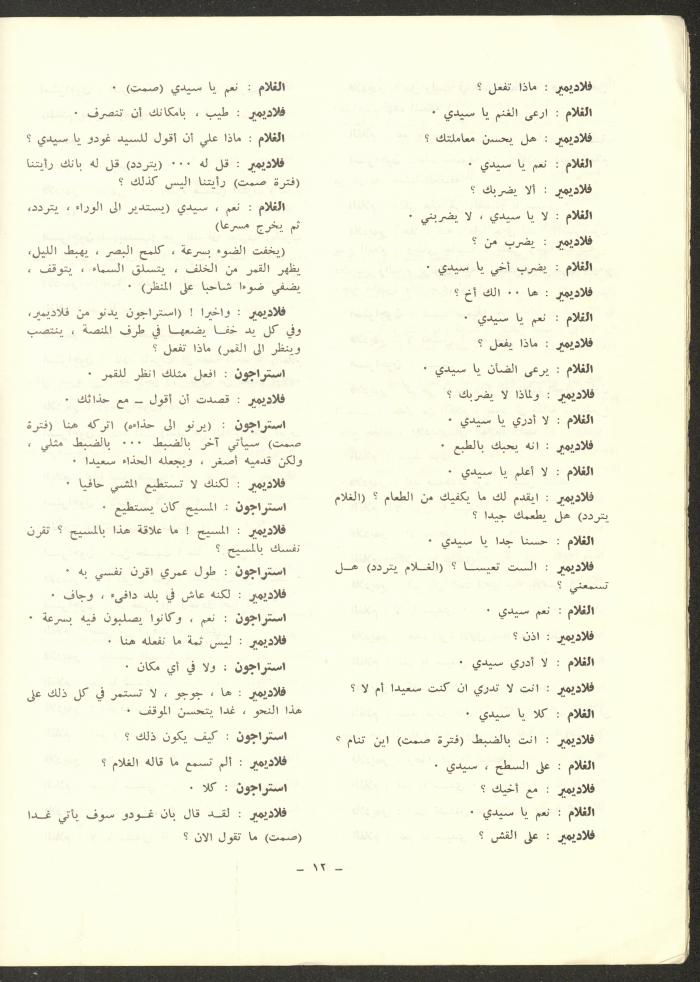 فلاديمير : ماذا تفعل ؟
الغلام : ارعى الغنم يا سيدي ٠
فلاديمير : هل يحسن معاملتك ؟
الغلام : نعم يا سيدي ٠
فلاديمير : ألا يضربك ؟
الغلام : لا يا سيدي ، لا يضربني ٠
فلاديمير : يضرب من ؟
الغلام : يضرب أخي يا سيدي ٠
فلاديمير : ها ٠٠ الك أخ ؟
الغلام : نعم يا سيدي ٠
فلاديمير : ماذا يفعل ؟
الغلام : يرعى الضأن يا سيدي ٠
فلاديمير : ولماذا لا يضربك ؟
الغلام : لا أدري يا سيدي ٠
فلاديمير : انه يحبك بالطبع ٠
الغلام : لا أعلم يا سيدي ٠
فلاديمير : ايقدم لك ما يكفيك من الطعام ؟ (الغلام
يتردد) هل يطعمك جيدا ؟
الغلام : حسنا جدا يا سيدي ٠
فلاديمير : الست تعيسا ؟ (الغلام يتردد) هل
تسمعني ؟
الغلام : نعم سيدي ٠
فلاديمير : اذن ؟
الغلام : لا أدري سيدي ٠
فلاديمير : انت لا تدري ان كنت سعيدا أم لا ؟
الغلام : كلا يا سيدي ٠
فلاديمير : انت بالضبط (فترة صمت) اين تنام ؟
الغلام : على السطح ، سيدي ٠
فلاديمير : مع أخيك ؟
الغلام : نعم يا سيدي ٠
فلاديمير : على القش ؟
الغلام : نعم يا سيدي (صمت) ٠
فلاديمير : طيب ، بامكانك أن تنصرف ٠
الغلام : ماذا علي أن أقول للسيد غودو يا سيدي ؟
فلاديمير : قل له ٠٠٠ (يتردد) قل له بانك رأيتنا
(فترة صمت) رأيتنا اليس كذلك ؟
الغلام : نعم ، سيدي (يستدير الى الوراء ، يتردد،
ثم يخرج مسرعا)
(يخفت الضوء بسرعة ، كلمح البصر ، يهبط الليل،
يظهر القمر من الخلف ، يتسلق السماء ، يتوقف ،
يضفي ضوءا شاحبا على المنظر) ٠
فلاديمير : واخيرا ! (استراجون يدنو من فلاديمير،
وفي كل يد خفا يضعهما في طرف المنصة ، ينتصب
وينظر الى القمر) ماذا تفعل ؟
استراجون : افعل مثلك انظر للقمر ٠
فلاديمير : قصدت أن أقول ــ مع حذائك ٠
استراجون : (يرنو الى حذاءه) اتركه هنا (فترة
صمت) سيأتي آخر بالضبط ٠٠٠ بالضبط مثلي ،
ولكن قدميه أصغر ، ويجعله الحذاء سعيدا ٠
فلاديمير : لكنك لا تستطيع المشي حافيا ٠
استراجون : المسيح كان يستطيع ٠
فلاديمير : المسيح ! ما علاقة هذا بالمسيح ؟ تقرن
نفسك بالمسيح ؟
استراجون : طول عمري اقرن نفسي به ٠
فلاديمير : لكنه عاش في بلد دافىء ، وجاف ٠
استراجون : نعم ، وكانوا يصلبون فيه بسرعة ٠
فلاديمير : ليس ثمة ما نفعله هنا ٠
استراجون : ولا في أي مكان ٠
فلاديمير : ها ، جوجو ، لا تستمر في كل ذلك على
هذا النحو ، غدا يتحسن الموقف ٠
استراجون : كيف يكون ذلك ؟
فلاديمير : ألم تسمع ما قاله الغلام ؟
استراجون : كلا ٠
فلاديمير : لقد قال بان غودو سوف يأتي غدا
(صمت) ما تقول الان ؟
ــ ١٢ ــ